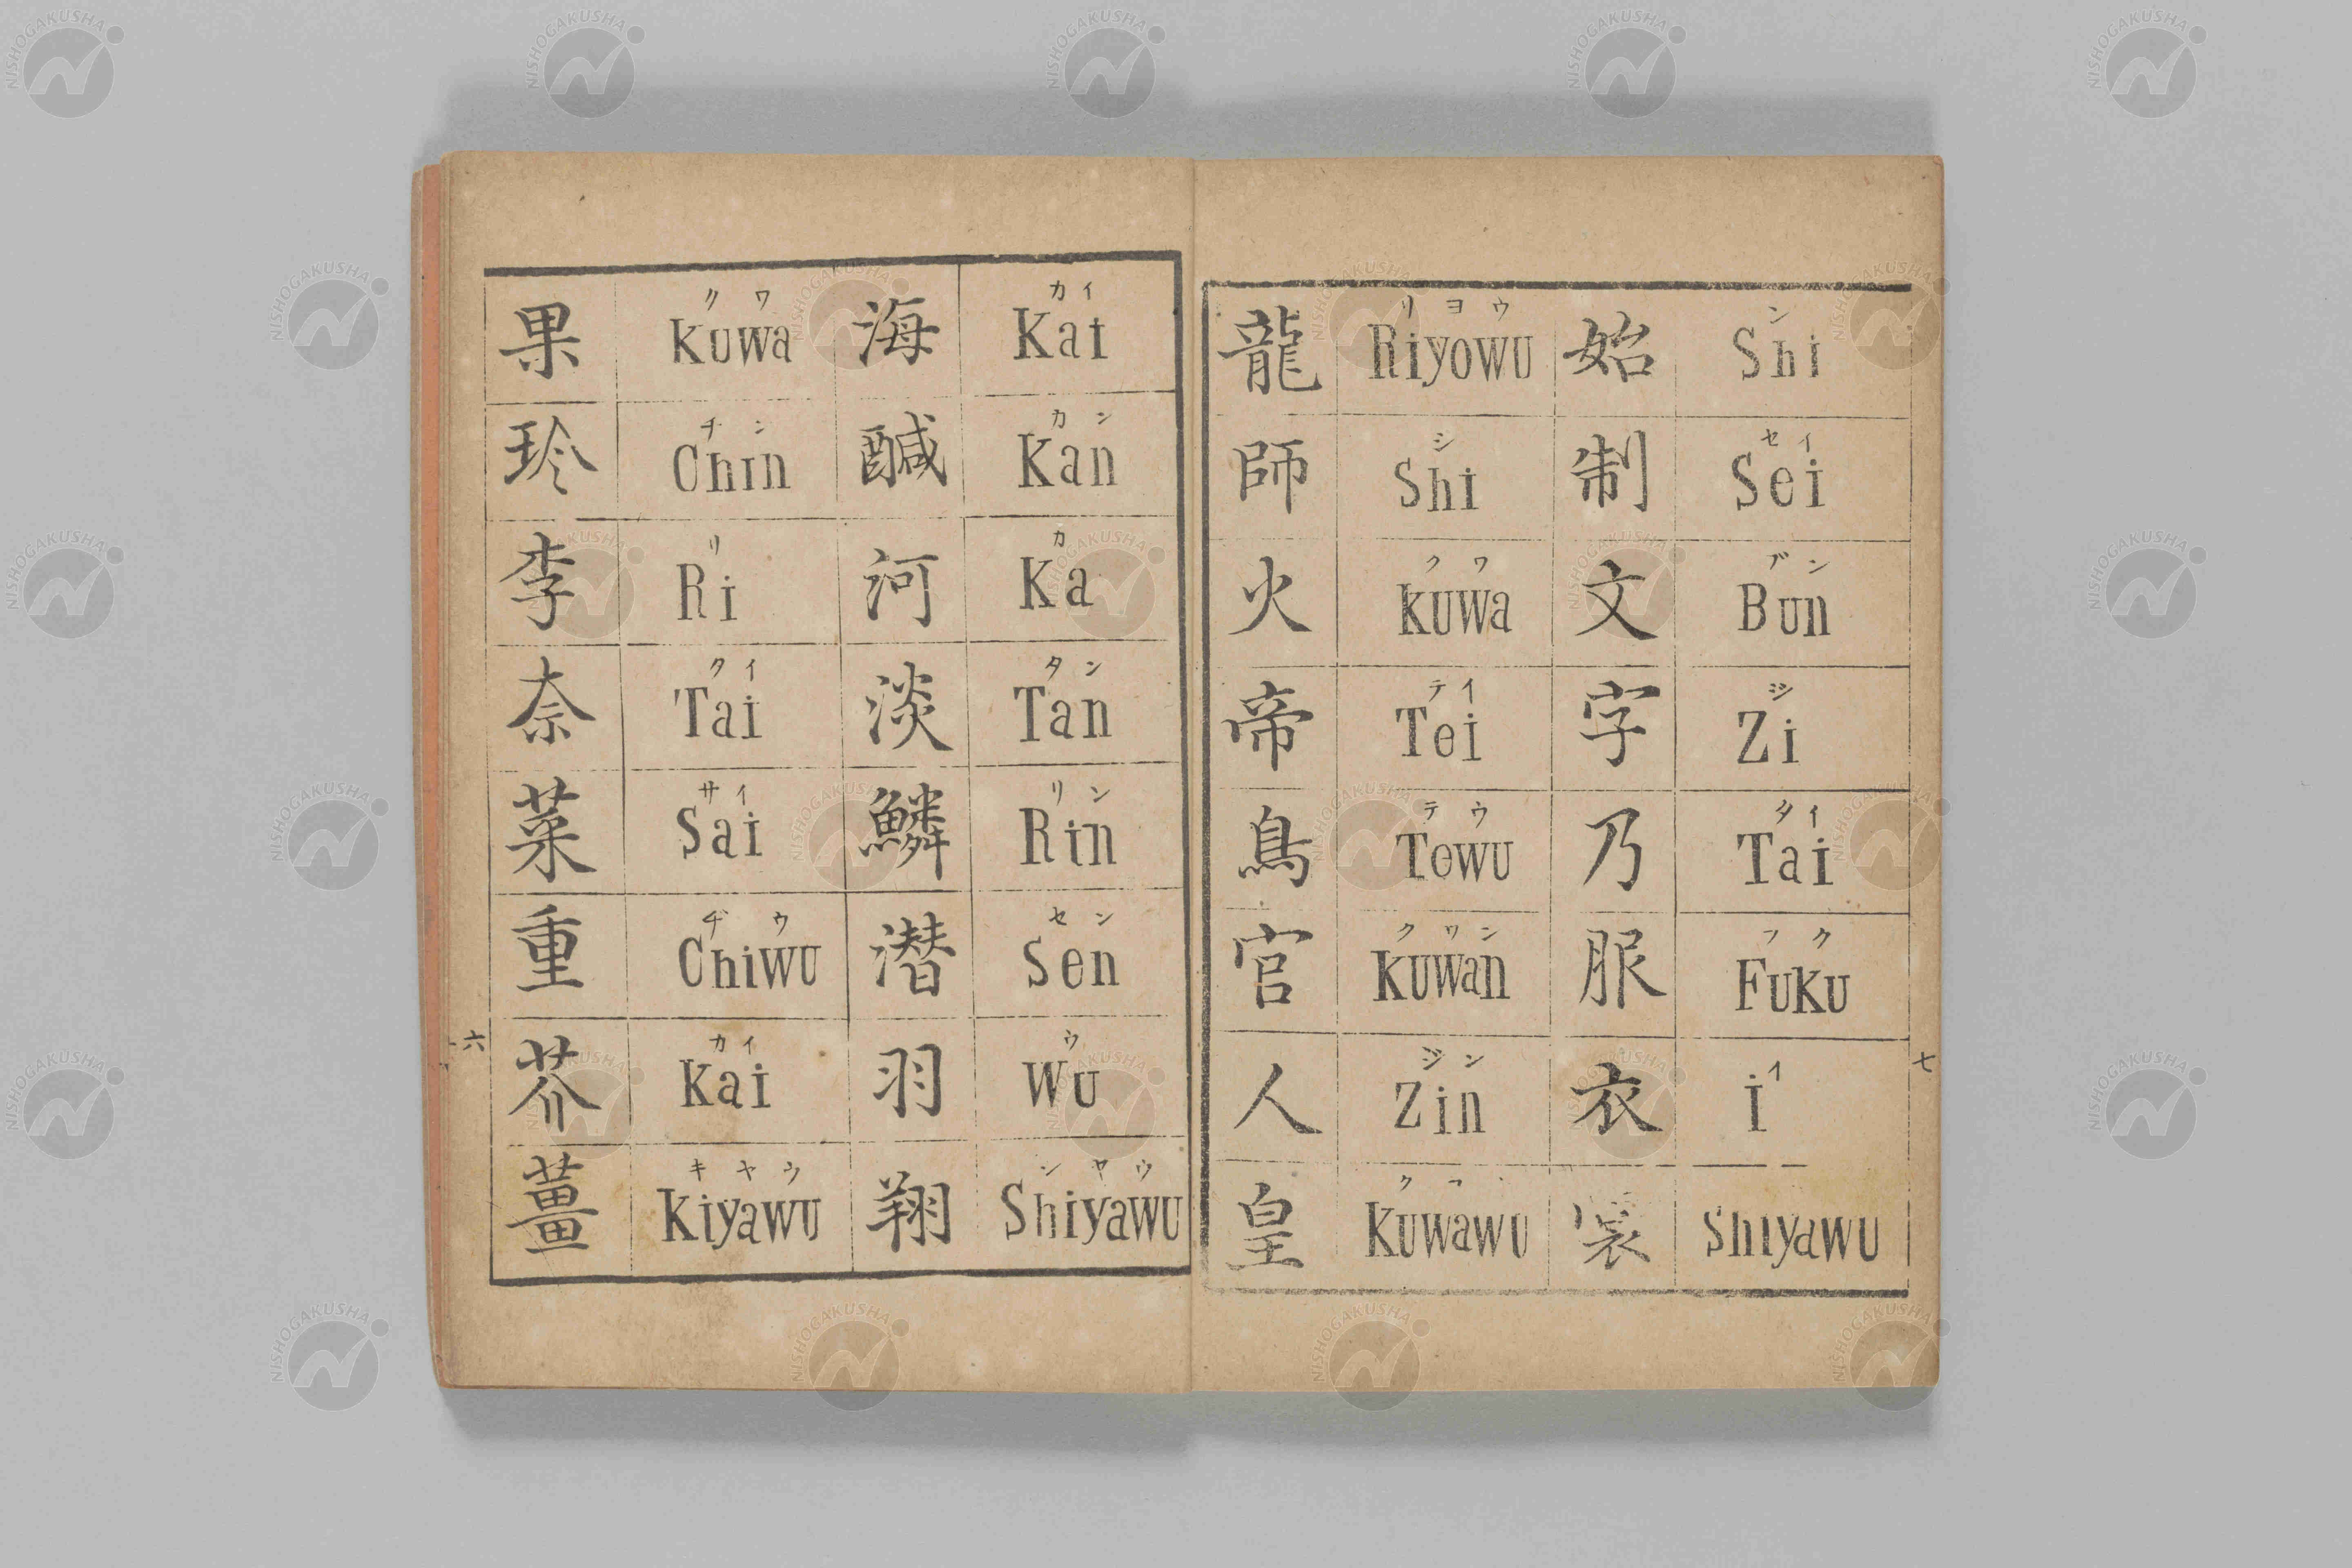 果 クワ Kuwa 海 カイ Kai
珍 チン Chin 醎 カン Kan
李 リ Ri 河 カ Ka
柰 タイ Tai 淡 タン Tan
菜 サイ Sai 鱗 リン Rin
重 ヂウ Chiwu 潛 セン Sen
芥 カイ Kai 羽 ウ Wu
薑 キヤウ Kiyawu 翔 シヤウ Shiyawu
六
龍 リヨウ Riyowu 始 シ Shi
師 シ Shi 制 セイ Sei
火 クワ Kuwa 文 ブン Bun
帝 テイ Tei 字 ジ Zi
鳥 テウ Tewu 乃 タイ Tai
官 クワン Kuwan 服 フク Fuku
人 ジン Zin 衣 イ I
皇 クワ Kuwawu 裳 Shiyawu
七
NISHOGAKUSHA